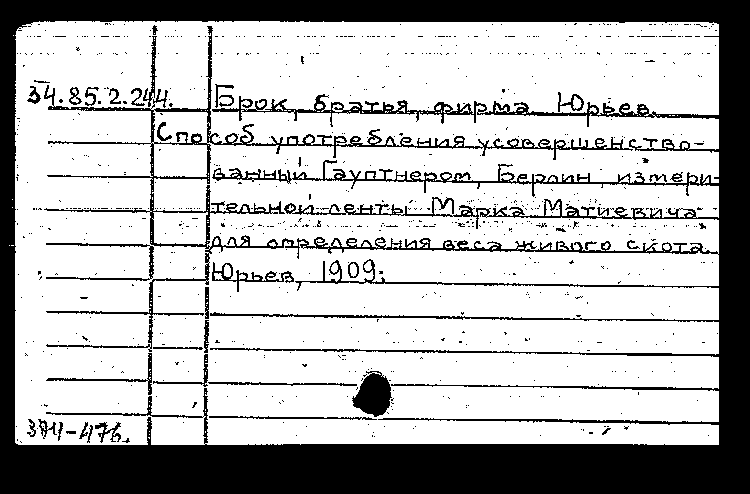 34.85.2.244. Брок, братья, фирма Юрьев.
Способ употребления усовершенство-
ванный Гауптнером, Берлин, измери-
тельной ленты Марка Матиевича
для определения веса живого скота
Юрьев, 1909;